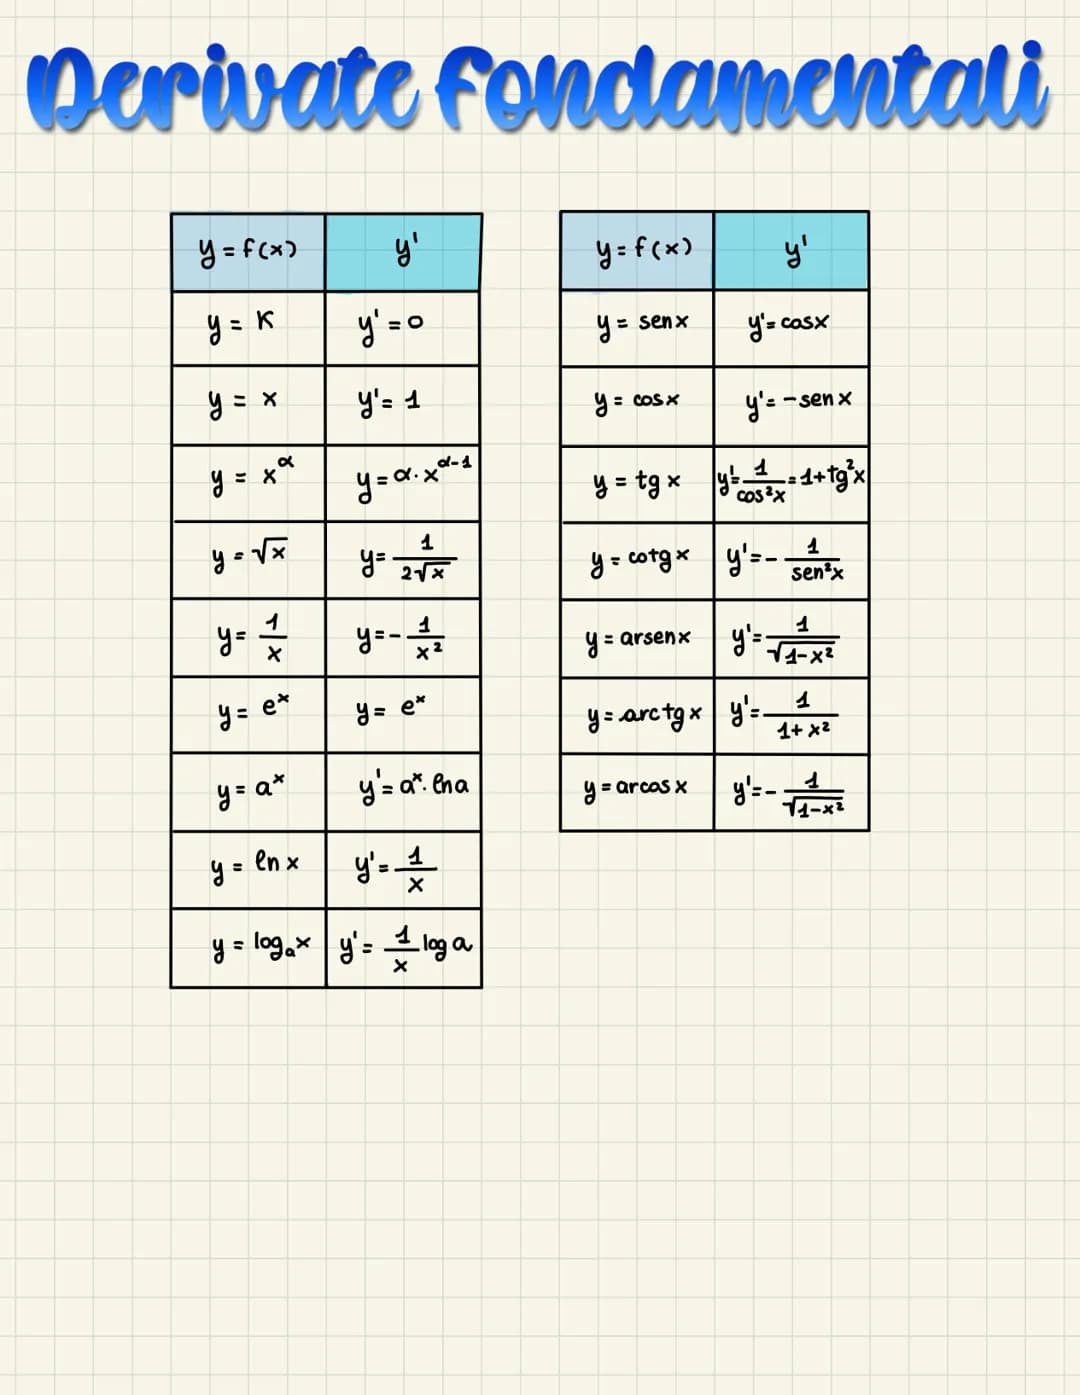 Derivate fondamentali
y = f(x) y'
y = K y' = 0
y = x y' = 1
y = x^α y = α · x^(α-1)
y = √x y = 1/(2√x)
y = 1/x y = - 1/x²
y = eˣ y = eˣ
y = aˣ y' = aˣ · ln a
y = ln x y' = 1/x
y = logₐx y' = 1/x log a
y = f(x) y'
y = senx y' = cosx
y = cosx y' = -sen x
y = tg x y' = 1/cos²x = 1+tg²x
y = cotg x y' = - 1/sen²x
y = arsenx y' = 1/√(1-x²)
y = arctg x y' = 1/(1+x²)
y = arcos x y' = - 1/√(1-x²)